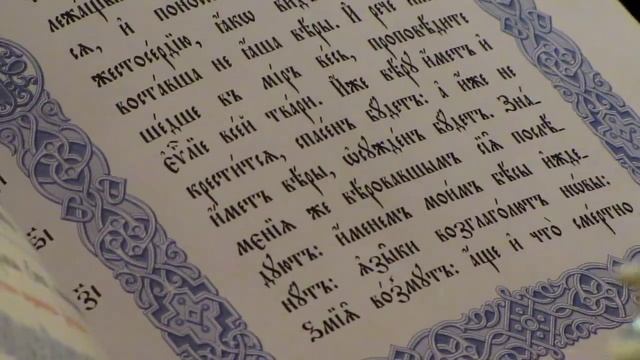 сѧ, и҆ поно
жестосе́рдїю, ꙗ҆́кѡ
воста́вша не ꙗ҆́ша вѣ́ры. И҆ речѐ
ше́дше въ мі́ръ ве́сь, проповѣ́дите
є҆ѵⷢ҇лїе все́й тва́ри. И҆́же вѣ́рꙋ и҆́метъ и҆
крести́тсѧ, спасе́нъ бꙋ́детъ: а҆ и҆́же не
и҆́метъ вѣ́ры, ѡ҆сꙋжде́нъ бꙋ́детъ. Зна́-
мєнїѧ же вѣ́ровавшымъ сїѧ̑ послѣ́-
дꙋютъ: и҆́менемъ мои́мъ бѣ́сы и҆жде-
нꙋ́тъ: ꙗ҆зы̑ки возглаго́лютъ нѡ́вы:
ѕмїѧ̑ во́змꙋтъ: а҆́ще и҆ что̀ сме́ртно
з҃і